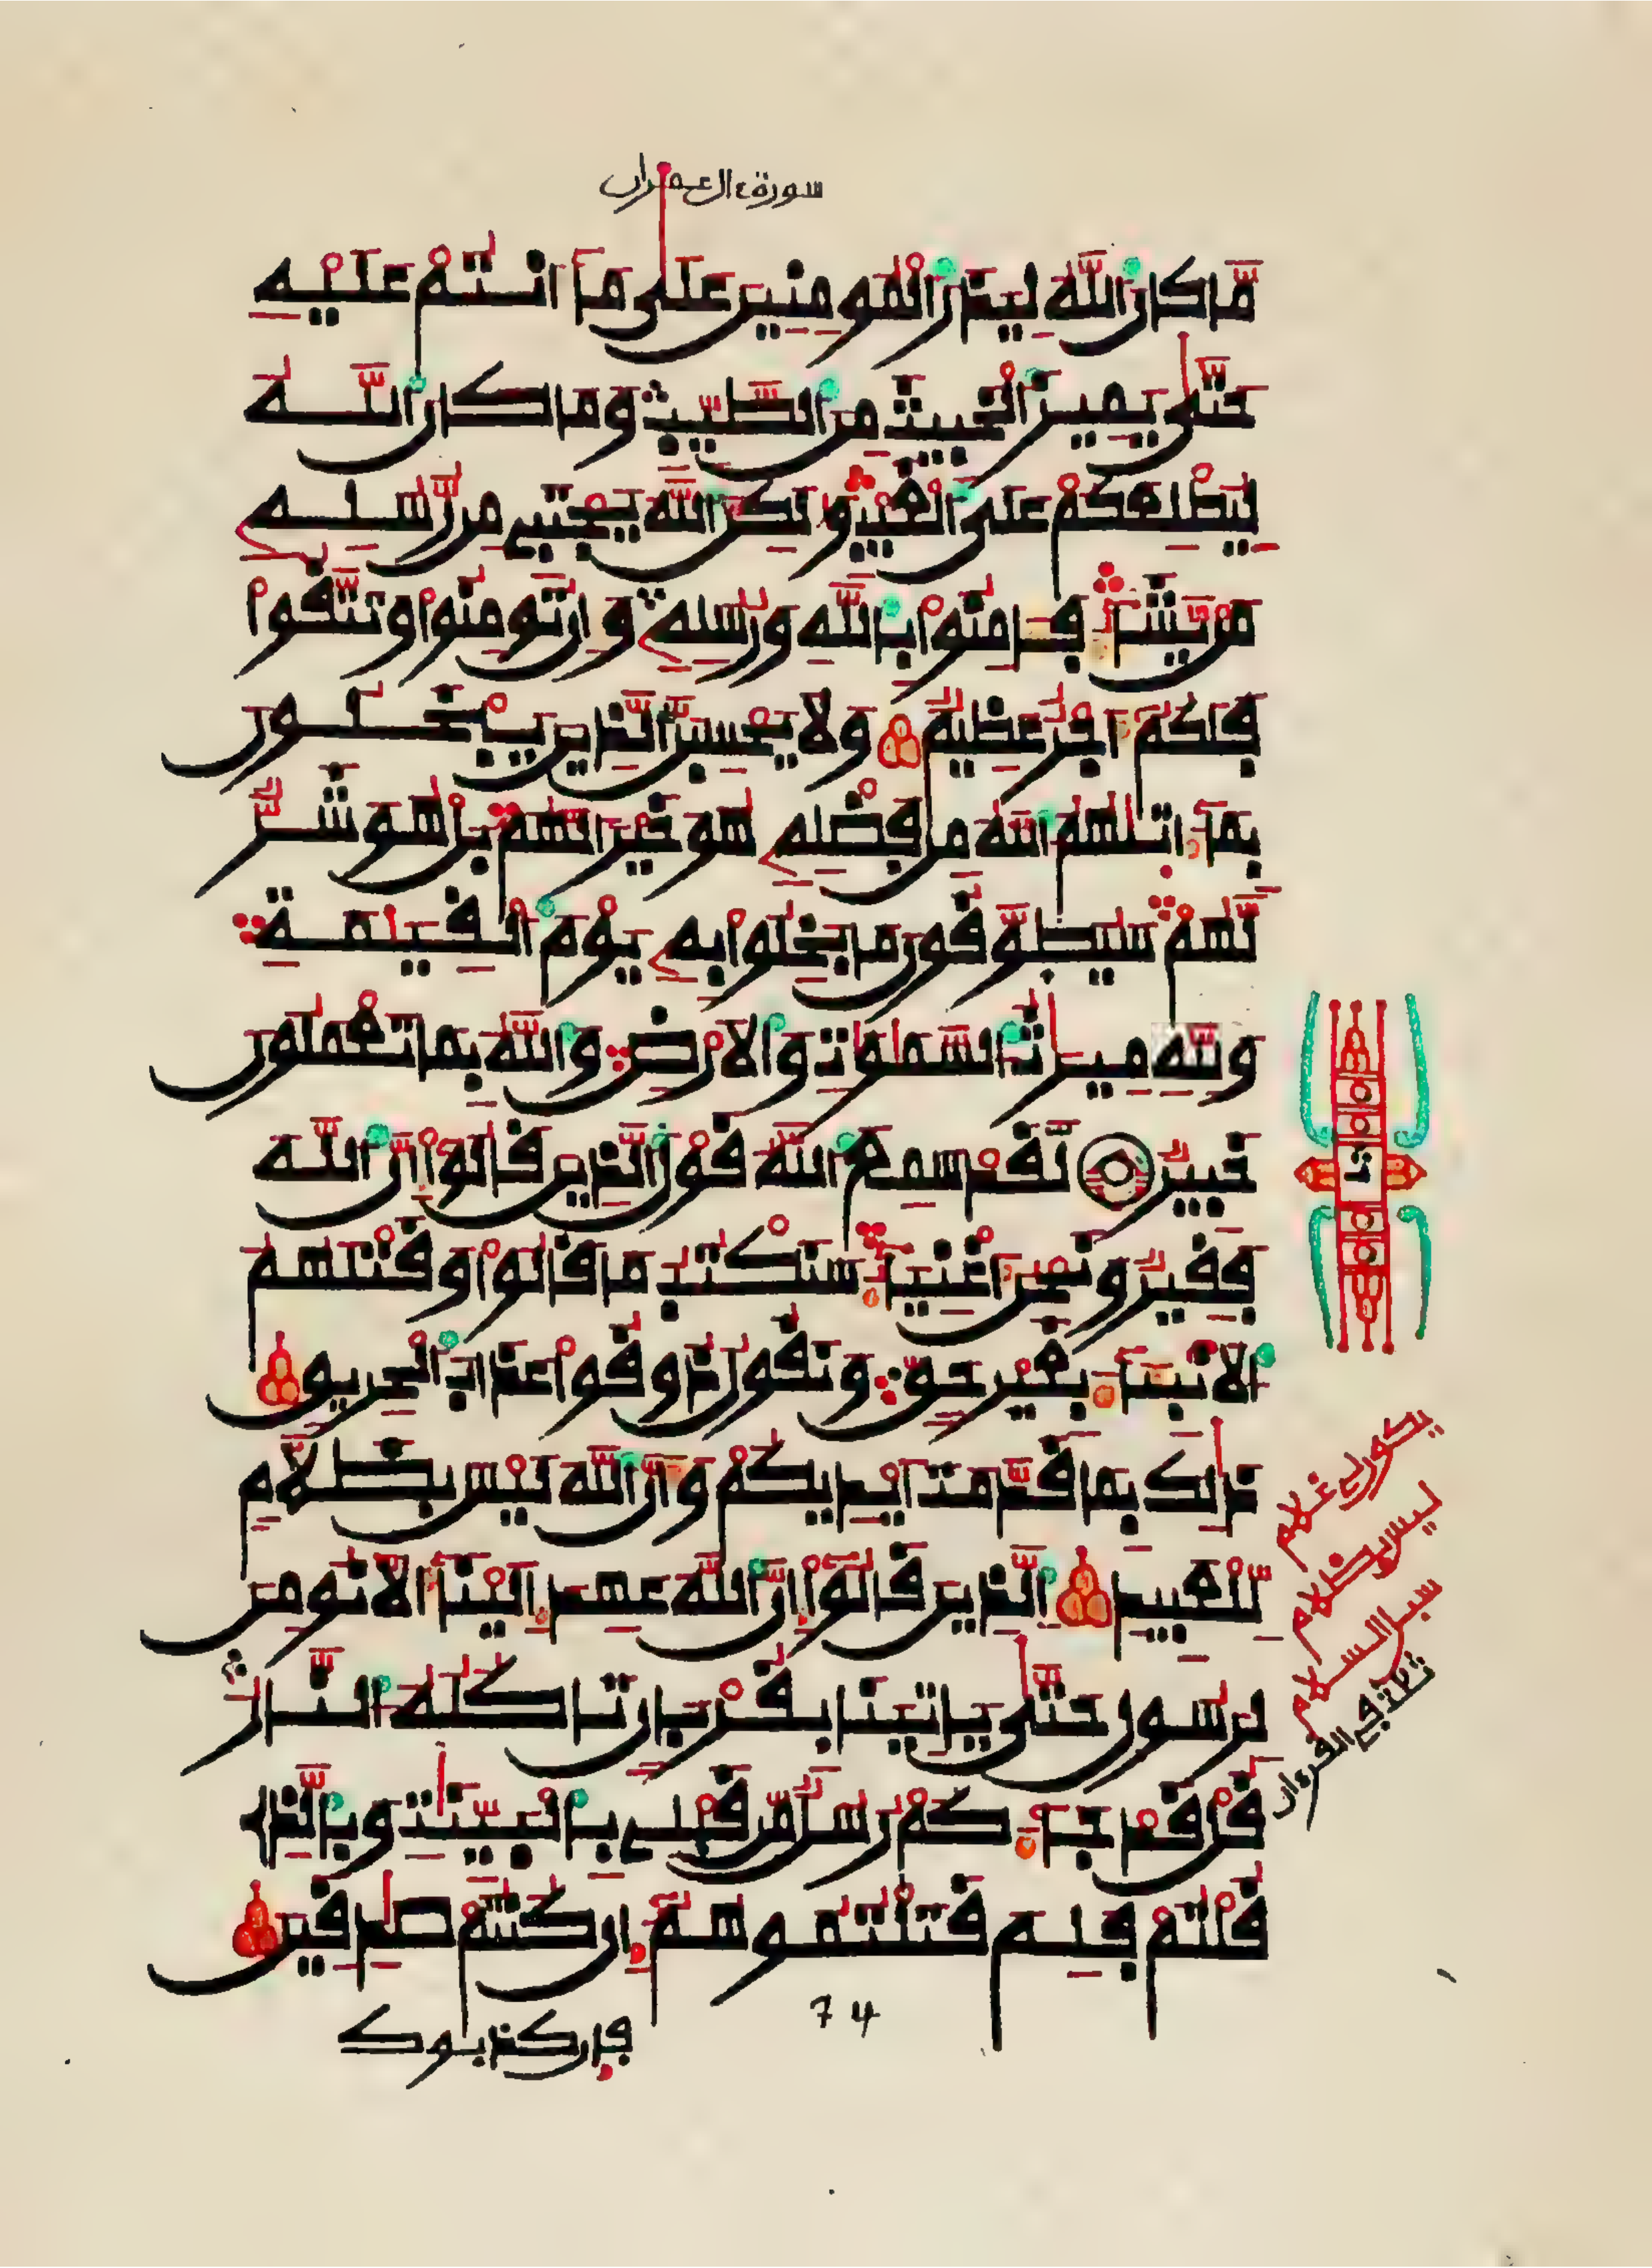 سورة ءال عمران
مَّا كَانَ ٱللَّهُ لِيَذَرَ ٱلْمُومِنِينَ عَلَىٰ مَآ أَنتُمْ عَلَيْهِ
حَتَّىٰ يَمِيزَ ٱلْخَبِيثَ مِنَ ٱلطَّيِّبِ وَمَا كَانَ ٱللَّهُ
لِيُطْلِعَكُمْ عَلَى ٱلْغَيْبِ وَلَٰكِنَّ ٱللَّهَ يَجْتَبِي مِن رُّسُلِهِۦ
مَنْ يَّشَآءُ فَـَٔامِنُوا۟ بِٱللَّهِ وَرُسُلِهِۦ وَإِن تُومِنُوا۟ وَتَتَّقُوا۟
فَلَكُمْ أَجْرٌ عَظِيمٌ وَلَا يَحْسِبَنَّ ٱلَّذِينَ يَبْخَلُونَ
بِمَآ ءَاتَىٰهُمُ ٱللَّهُ مِن فَضْلِهِۦ هُوَ خَيْرًا لَّهُم بَلْ هُوَ شَرٌّ
لَّهُمْ سَيُطَوَّقُونَ مَا بَخِلُوا۟ بِهِۦ يَوْمَ ٱلْقِيَٰمَةِ
وَلِلَّهِ مِيرَٰثُ ٱلسَّمَٰوَٰتِ وَٱلَارْضِ وَٱللَّهُ بِمَا تَعْمَلُونَ
خَبِيرٌ لَّقَدْ سَمِعَ ٱللَّهُ قَوْلَ ٱلَّذِينَ قَالُوٓا۟ إِنَّ ٱللَّهَ
فَقِيرٌ وَنَحْنُ أَغْنِيَآءُ سَنَكْتُبُ مَا قَالُوا۟ وَقَتْلَهُمُ
ٱلَانۢبِيَآءَ بِغَيْرِ حَقٍّ وَنَقُولُ ذُوقُوا۟ عَذَابَ ٱلْحَرِيقِ
ذَٰلِكَ بِمَا قَدَّمَتَ اَيْدِيكُمْ وَأَنَّ ٱللَّهَ لَيْسَ بِظَلَّامٍ
لِّلْعَبِيدِ ٱلَّذِينَ قَالُوٓا۟ إِنَّ ٱللَّهَ عَهِدَ إِلَيْنَآ أَلَّا نُومِنَ
لِرَسُولٍ حَتَّىٰ يَاتِيَنَا بِقُرْبَانٍ تَاكُلُهُ ٱلنَّارُ
قُلْ قَدْ جَآءَكُمْ رُسُلٌ مِّن قَبْلِي بِٱلْبَيِّنَٰتِ وَبِٱلَّذِي
قُلْتُمْ فَلِمَ قَتَلْتُمُوهُمُ إِن كُنتُمْ صَٰدِقِينَ
74
فإن كذبوك
يكون لي غلام
ليس بظلام
سبل السلام
ثلاثة في القرءان